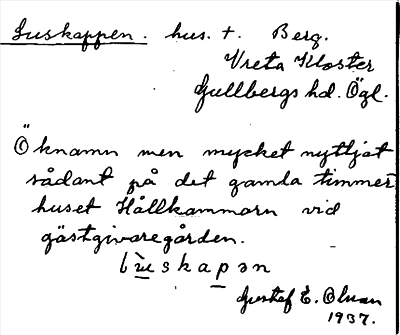 Luskappen. hus. t. Berg.
Vreta Kloster
Gullbergs hd. Ögl.
Öknamn men mycket nyttjat
sådant på det gamla timmer-
huset Hållkammarn vid
gästgivaregården.
lùskapən
Gustef E. Olman
1937.